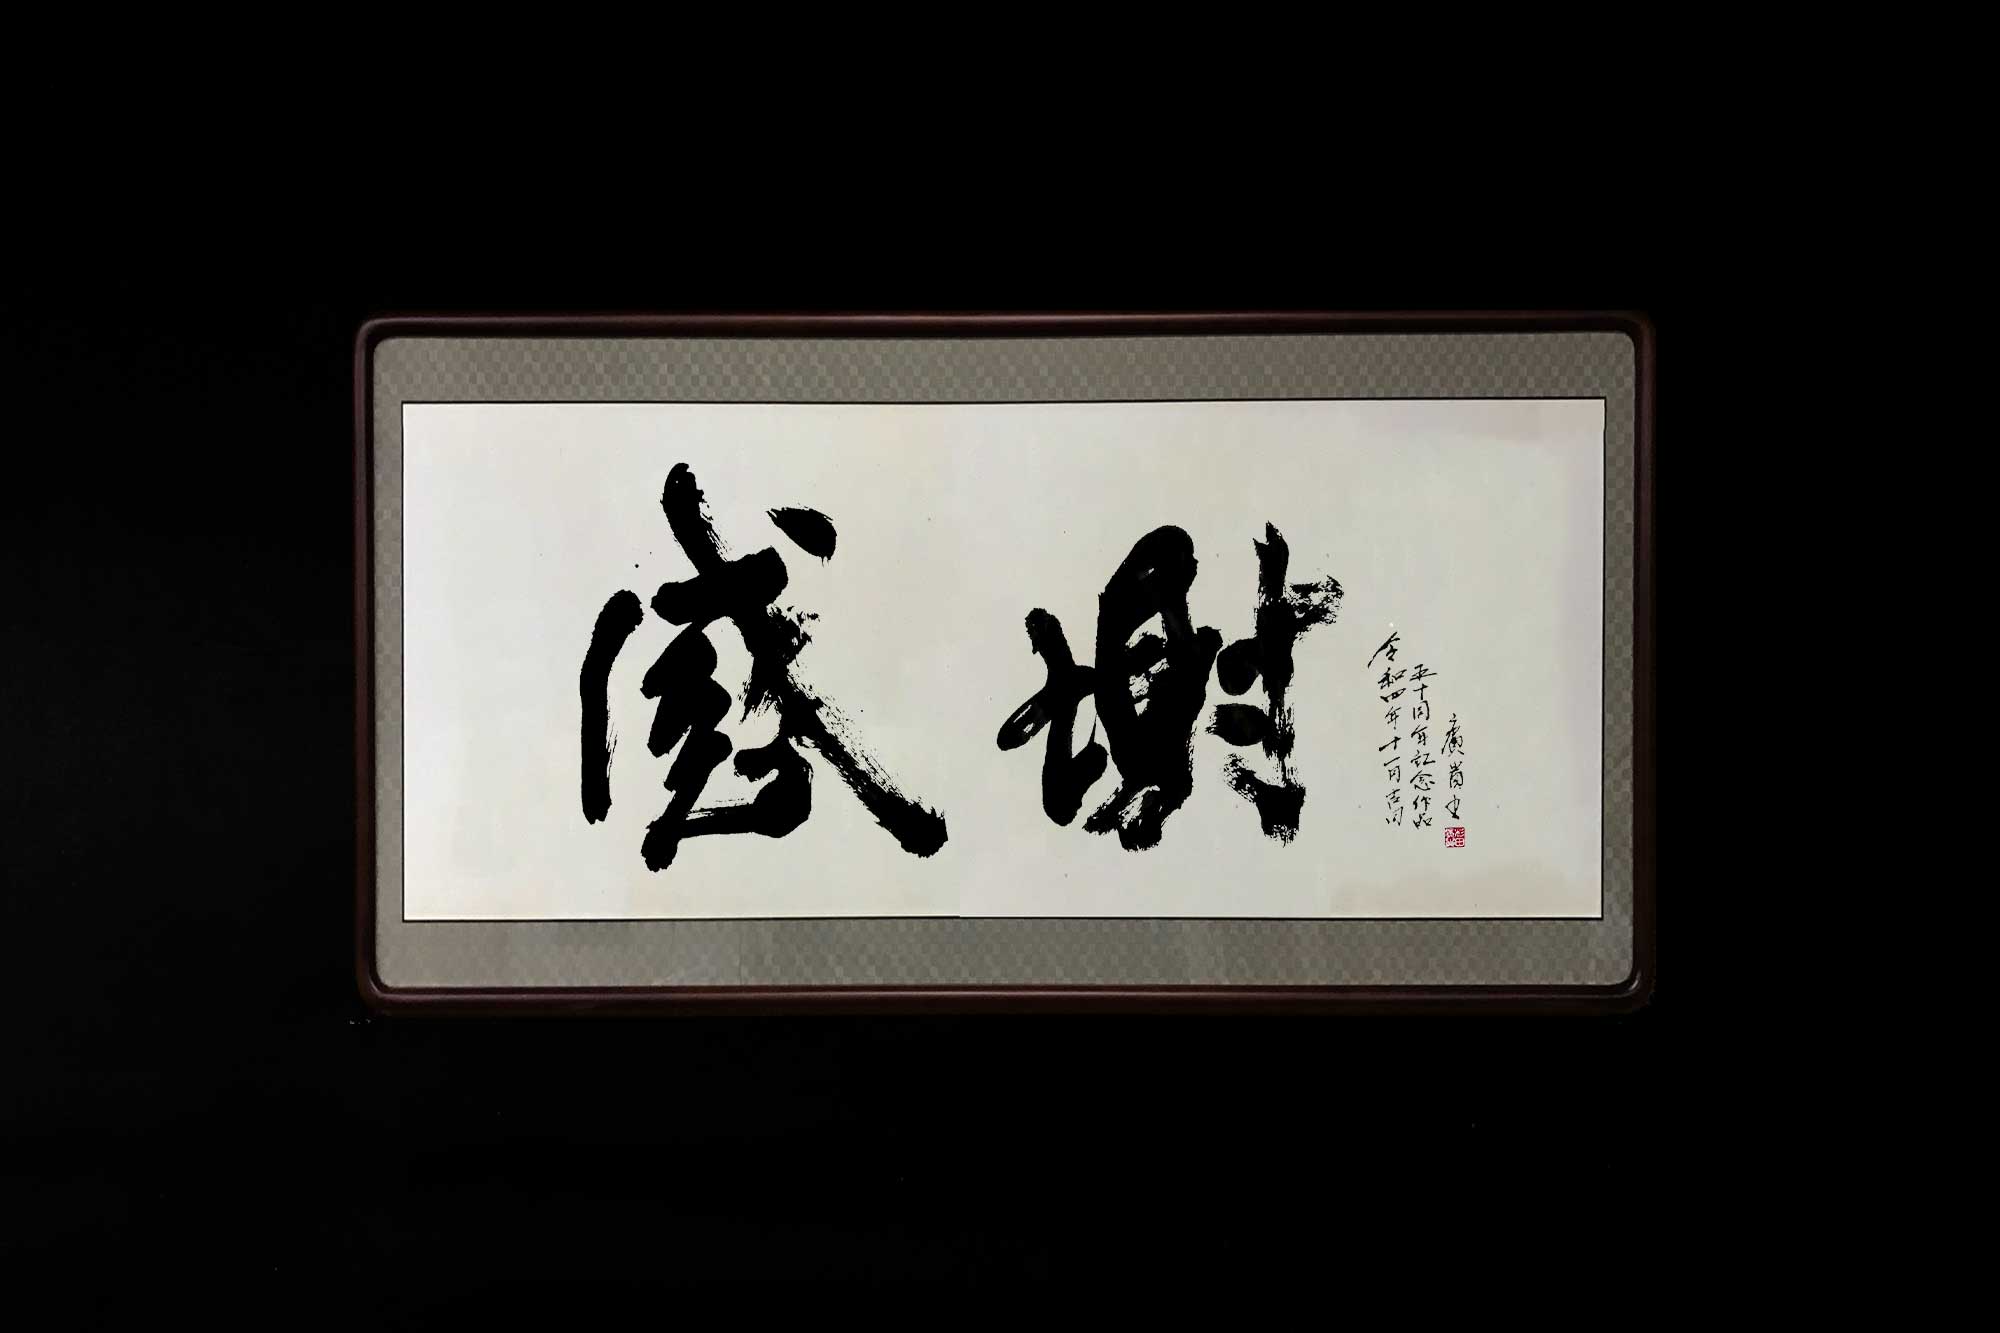 感謝
令和四年十一月吉日
五十周年記念作品
廣尚書